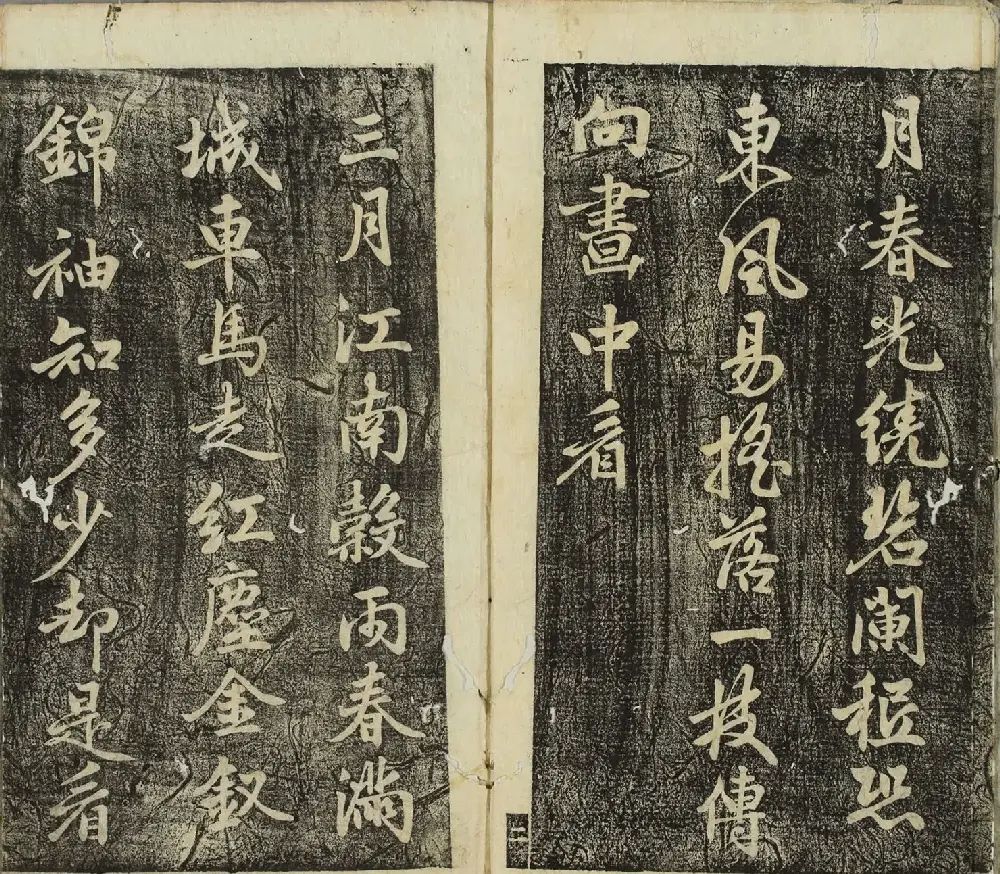 月春光繞碧闌秪恐
東風易搖落一枝傳
向畫中看
三月江南穀雨春滿
城車馬走紅塵金釵
錦袖知多少却是看
二